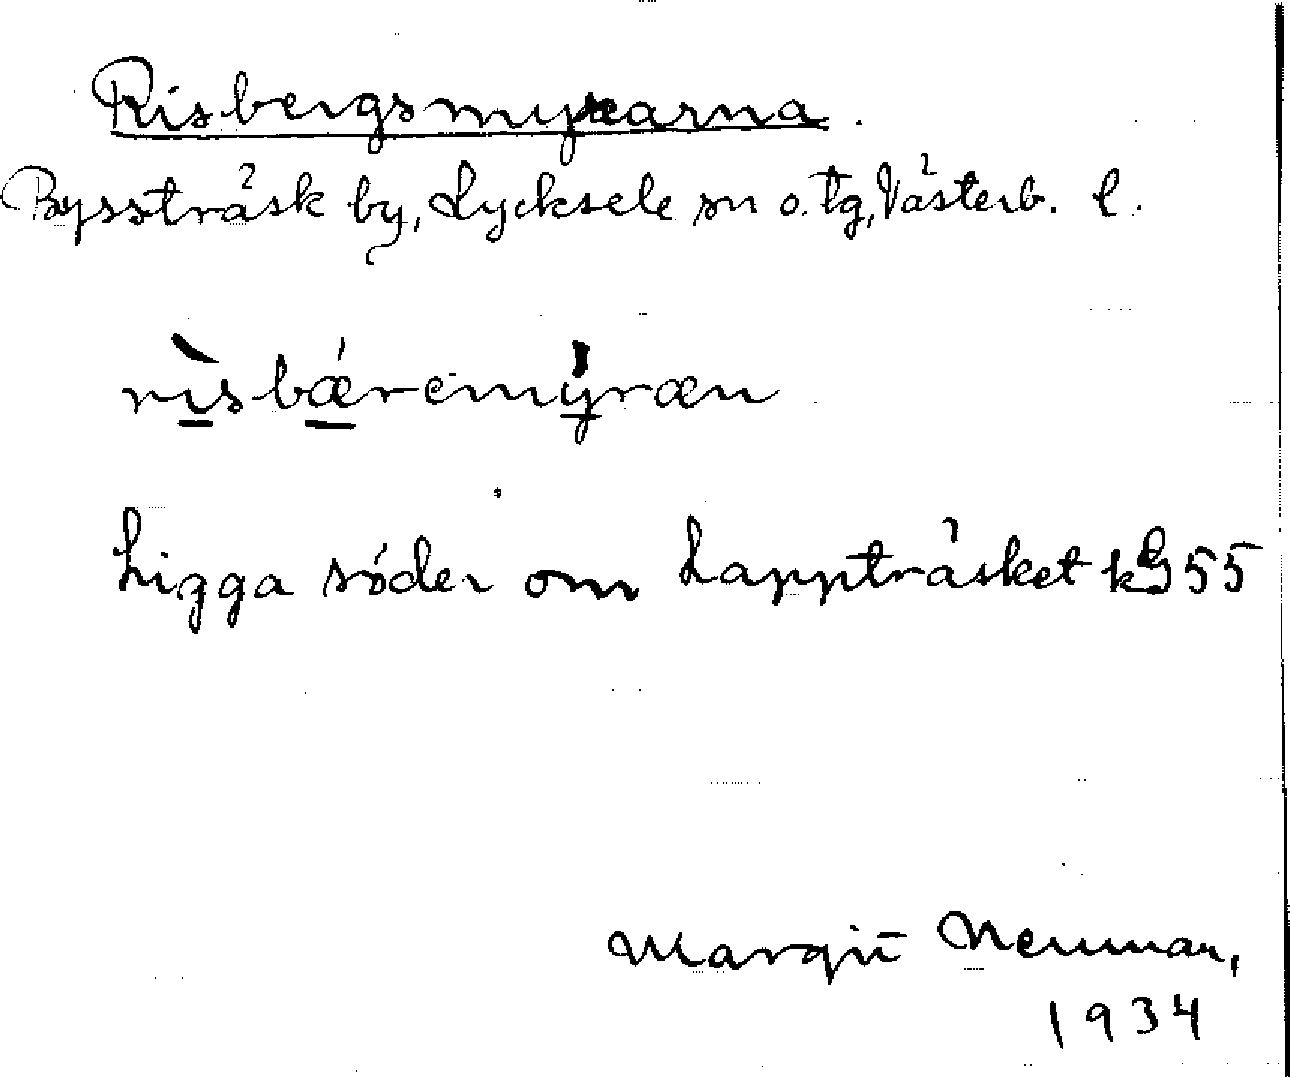 Risbergsmyrarna.
Bysstråsk by, Lycksele sn o. tg, Västerb. l.
rìsbǽremýræn
Ligga söder om Lappträsket k 55
Margit Neuman,
1934